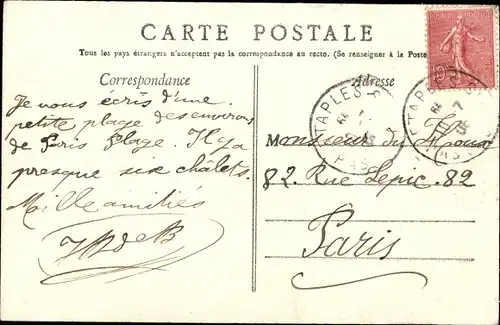 CARTE POSTALE
Tous les pays étrangers n'acceptent pas la correspondance au recto. (Se renseigner à la Poste
Correspondance
Adresse
Je vous écris d'une
petite plage des environs
de Paris Plage. Il y a
presque six châlets.
Mille amitiés
ETAPLES
ETAPLES
Monsieur du
82. Rue Lepic. 82
Paris